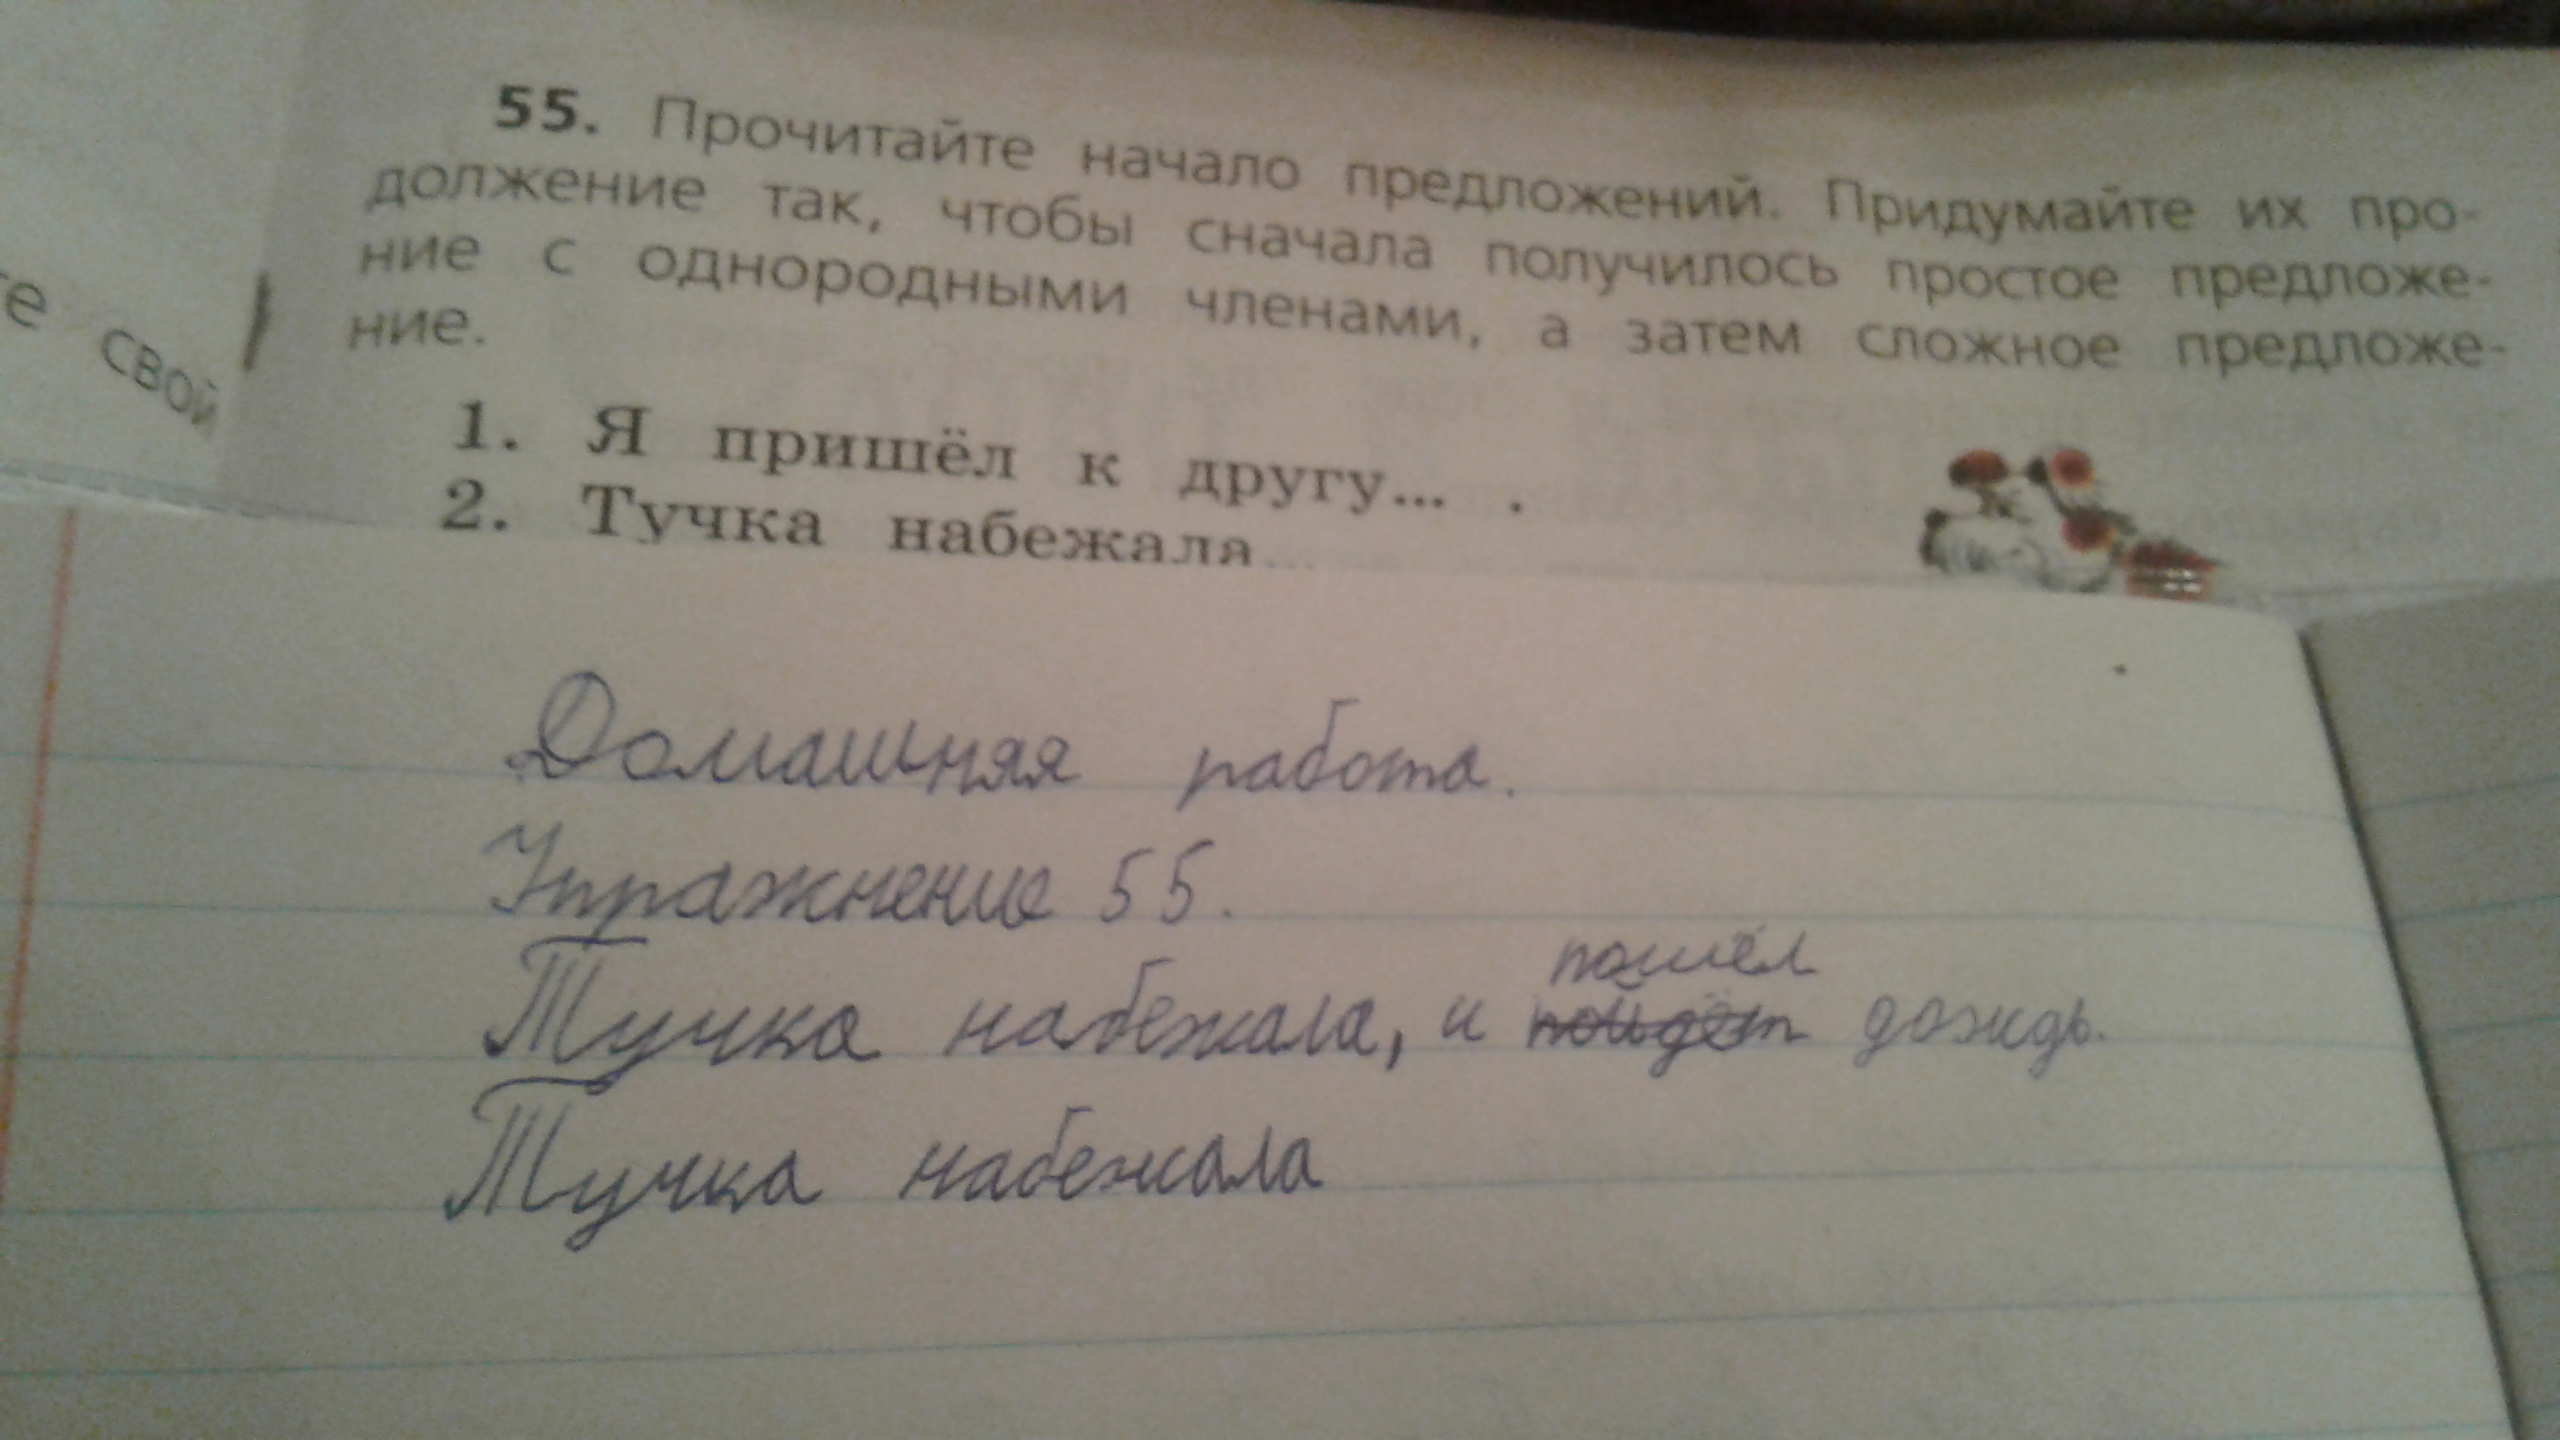 55. Прочитайте начало предложений. Придумайте их про-
должение так, чтобы сначала получилось простое предложе-
ние с однородными членами, а затем сложное предложе-
ние.
свой
1. Я пришёл к другу... .
2. Тучка набежала
Домашняя работа.
Упражнение 55.
пошёл
Тучка набежала, и пойдёт дождь.
Тучка набежала